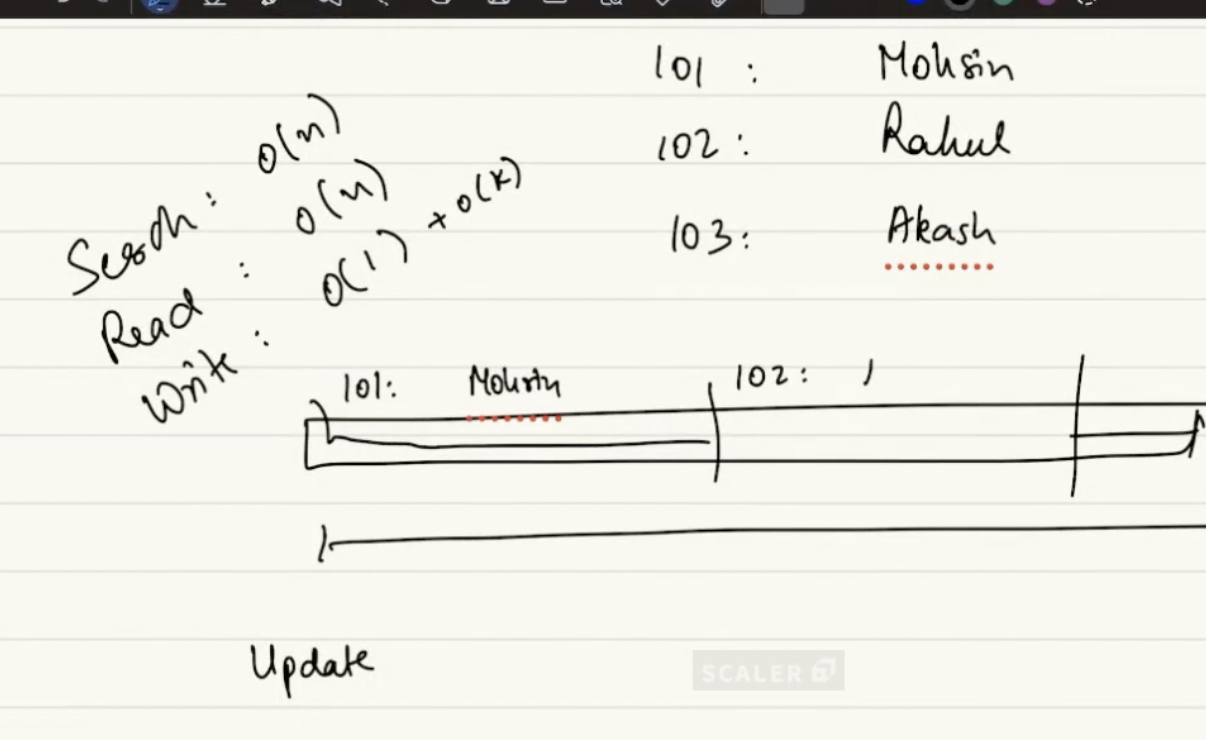 101 : Mohsin
102 : Rahul
103 : Akash
Search : O(n)
Read : O(n)
Write : O(1) + O(k)
101: Mohsin 102:
Update
SCALER